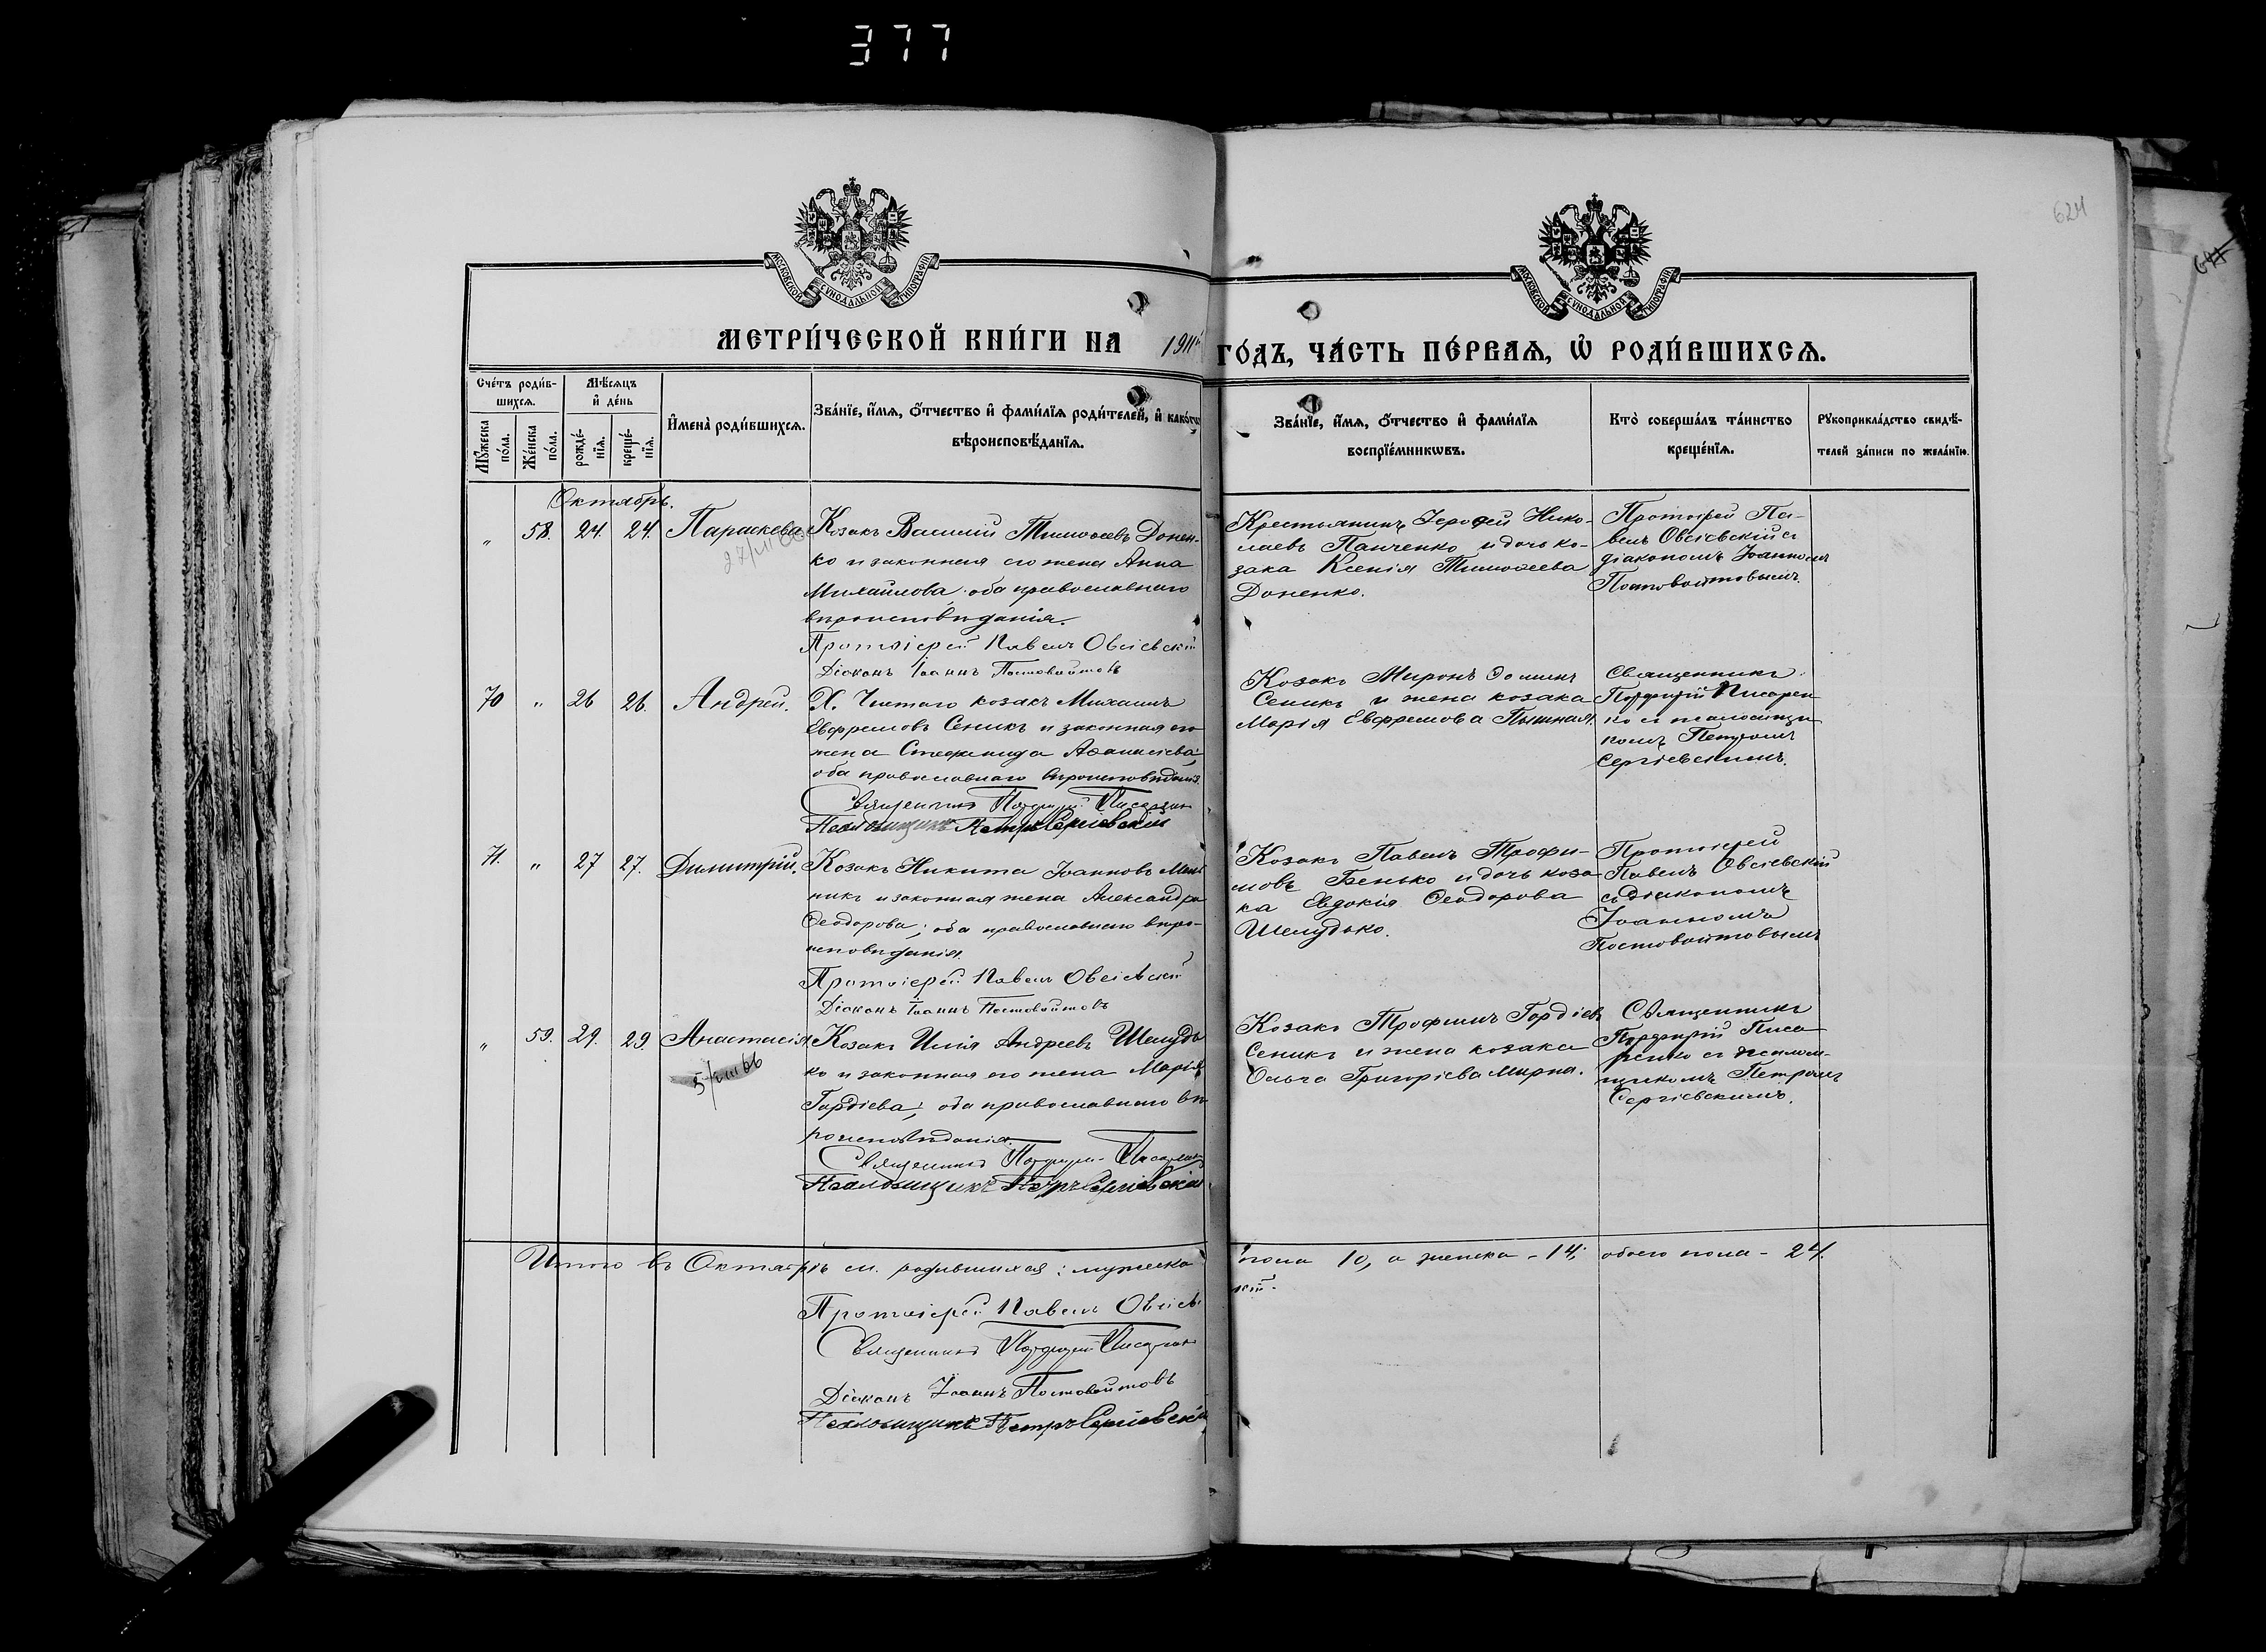 377
624
МОСКОВСКОЙ СѴНОДАЛЬНОЙ ТИПОГРАФІИ
МОСКОВСКОЙ СѴНОДАЛЬНОЙ ТИПОГРАФІИ
МЕТРИ́ЧЕСКОЙ КНИ́ГИ НА 1911 ГО́ДЪ, ЧА́СТЬ ПЕ́РВАЯ, Ѡ҆ РОДИ́ВШИХСЯ.
Сче́тъ роди́в-
шихсѧ.
Мꙋ́жеска по́ла.
Же́нска по́ла.
Мѣ́сѧцъ и҆ де́нь
рожде́-нїѧ.
креще́-нїѧ.
И҆мена̀ роди́вшихсѧ.
Зва́нїе, и҆́мѧ, ѻ҆́тчество и҆ фами́лїѧ роди́телей, и҆ како́гѡ
вѣроисповѣ́данїѧ.
Зва́нїе, и҆́мѧ, ѻ҆́тчество и҆ фами́лїѧ
воспрїе́мникѡвъ.
Кто̀ соверша́лъ та́инство
креще́нїѧ.
Рꙋкоприкла́дство свидѣ́-
телей за́писи по жела́нїю.
Октябрь.
" 58. 24. 24. Параскева
Козакъ Василій Тимоѳеевъ Донен-
ко и законная его жена Анна
Михайлова; оба православнаго
вѣроисповѣданія.
Протоіерей Павелъ Овсіевскій
Діаконъ Іоаннъ Постовойтовъ
Крестьянинъ Іероѳей Нико-
лаевъ Панченко и дочь ко-
зака Ксенія Тимоѳеева
Доненко.
Протоіерей Па-
велъ Овсіевскій съ
діакономъ Іоанномъ
Постовойтовымъ.
70 " 26 26. Андрей.
Х. Чистаго козакъ Михаилъ
Евфремовъ Сеникъ и законная его
жена Стефанида Аѳанасіева;
оба православнаго вѣроисповѣданія.
Священникъ Порфирій Писаренко
Псаломщикъ Петръ Сергіевскій
Козакъ Миронъ Ѳоминъ
Сеникъ и жена козака
Марія Евфремова Пышная.
Священникъ
Порфирій Писарен-
ко съ псаломщи-
комъ Петромъ
Сергіевскимъ.
71. " 27 27. Димитрій.
Козакъ Никита Іоанновъ Мель
никъ и законная жена Александра
Ѳеодорова; оба православнаго вѣро-
исповѣданія.
Протоіерей Павелъ Овсіевскій
Діаконъ Іоаннъ Постовойтовъ
Козакъ Павелъ Трофи-
мовъ Бенько и дочь коза-
ка Евдокія Ѳеодорова
Шелудько.
Протоіерей
Павелъ Овсіевскій
съ діакономъ
Іоанномъ
Постовойтовымъ
" 59. 29. 29. Анастасія
Козакъ Илія Андреевъ Шелудь
ко и законная его жена Марія
Гордіева; оба православнаго вѣ
роисповѣданія.
Священникъ Порфирій Писаренко
Псаломщикъ Петръ Сергіевскій
Козакъ Трофимъ Гордіевъ
Сеникъ и жена козака
Ольга Григоріева Мирна.
Священникъ
Порфирій Писа
ренко съ псалом-
щикомъ Петромъ
Сергіевскимъ.
Итого въ Октябрѣ м. родившихся: мужеска пола 10, а женска - 14; обоего пола - 24.
Протоіерей Павелъ Овсіевскій.
Священникъ Порфирій Писаренко
Діаконъ Іоаннъ Постовойтовъ
Псаломщикъ Петръ Сергіевскій